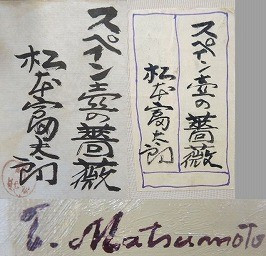 スペイン壺の薔薇
松本富太郎
スペイン壺の薔薇
松本富太郎
T. Matsumoto